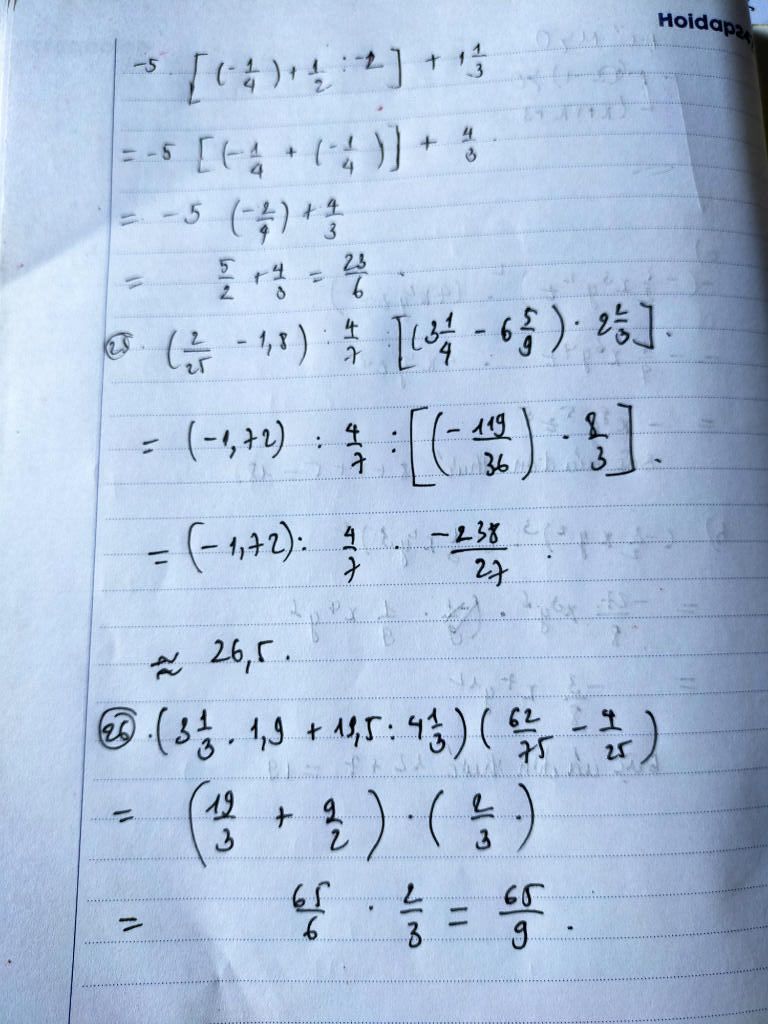 Hoidap24
-5 . [(-1/4) + 1/2 : -2] + 1 1/3
= -5 [(-1/4 + (-1/4)] + 4/3
= -5 (-2/4) + 4/3
= 5/2 + 4/3 = 23/6 .
25 . (2/25 - 1,8) : 4/7 : [(3 1/4 - 6 5/9) . 2 2/3] .
= (-1,72) : 4/7 : [(-119/36) . 8/3] .
= (-1,72) : 4/7 . -238/27 .
≈ 26,5 .
26 . (3 1/3 . 1,9 + 19,5 : 4 1/3) (62/75 - 4/25)
= (19/3 + 9/2) . (2/3 .)
= 65/6 . 2/3 = 65/9 .